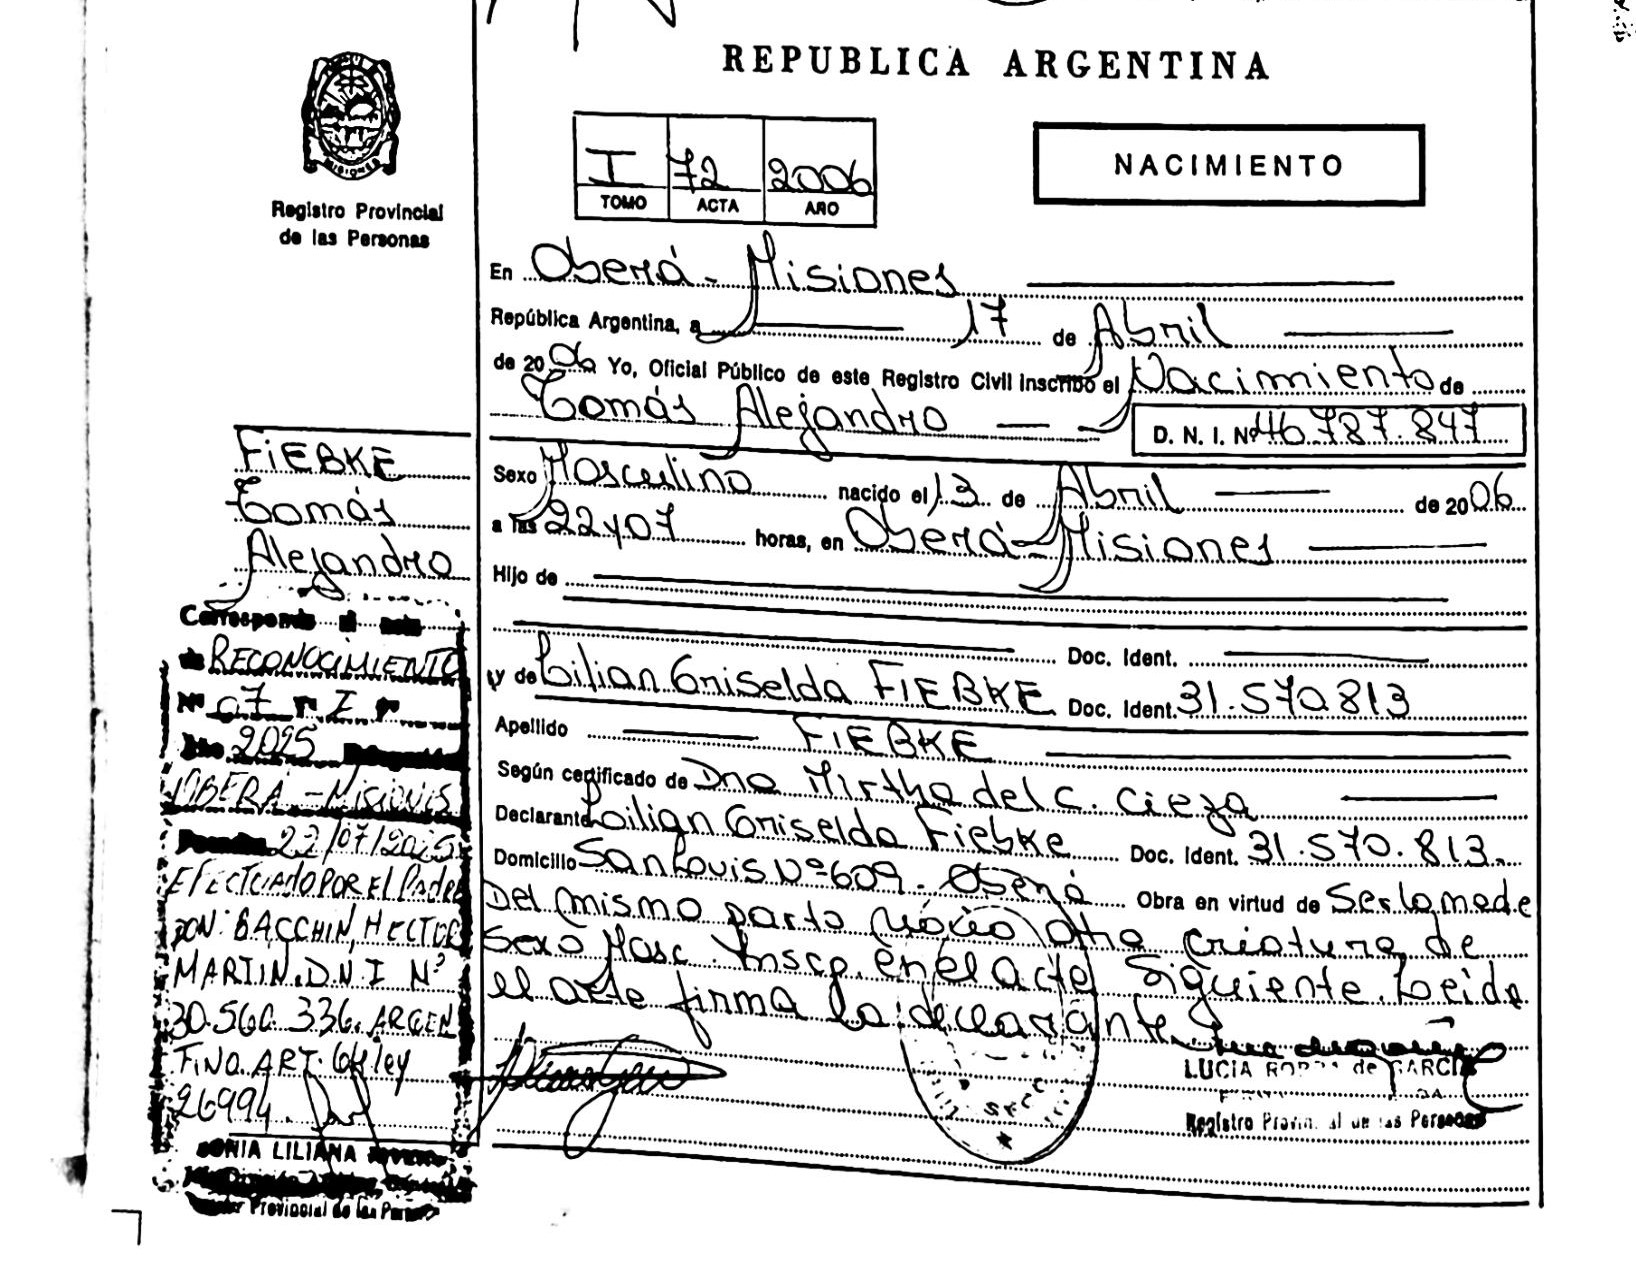 REPUBLICA ARGENTINA
MISIONES
Registro Provincial
de las Personas
I 72 2006
TOMO ACTA AÑO
NACIMIENTO
En Oberá - Misiones
República Argentina, a 17 de Abril
de 2006 Yo, Oficial Público de este Registro Civil inscribo el Nacimiento de
Tomás Alejandro
D. N. I. Nº 46.787.847
Sexo Masculino nacido el 13 de Abril de 2006
a las 22 y 07 horas, en Oberá - Misiones
Hijo de
Doc. Ident.
y de Lilian Griselda FIEBKE Doc. Ident. 31.570.813
Apellido FIEBKE
Según certificado de Dra Mirtha del C. Cieza
Declarante Lilian Griselda Fiebke Doc. Ident. 31.570.813.
Domicilio San Luis Nº 609. Oberá Obra en virtud de Ser la madre
Del mismo parto nació otra criatura de
Sexo Masc. Inscp. en el acta Siguiente. Leida
el acta firma la declarante
LUCIA de GARCIA
Registro Provincial de las Personas
FIEBKE
Tomás
Alejandro
Corresponde al acta
de RECONOCIMIENTO
Nº 07 Tº I Fº
Año 2025 Delegación
OBERÁ - Misiones
22/07/2025
EFECTUADO POR El Padre
DON: BACCHIN, HECTOR
MARTIN. D.N.I Nº
30.560.336. ARGEN
TINO. ART. ley
26994.
SONIA LILIANA
Provincial de las Personas